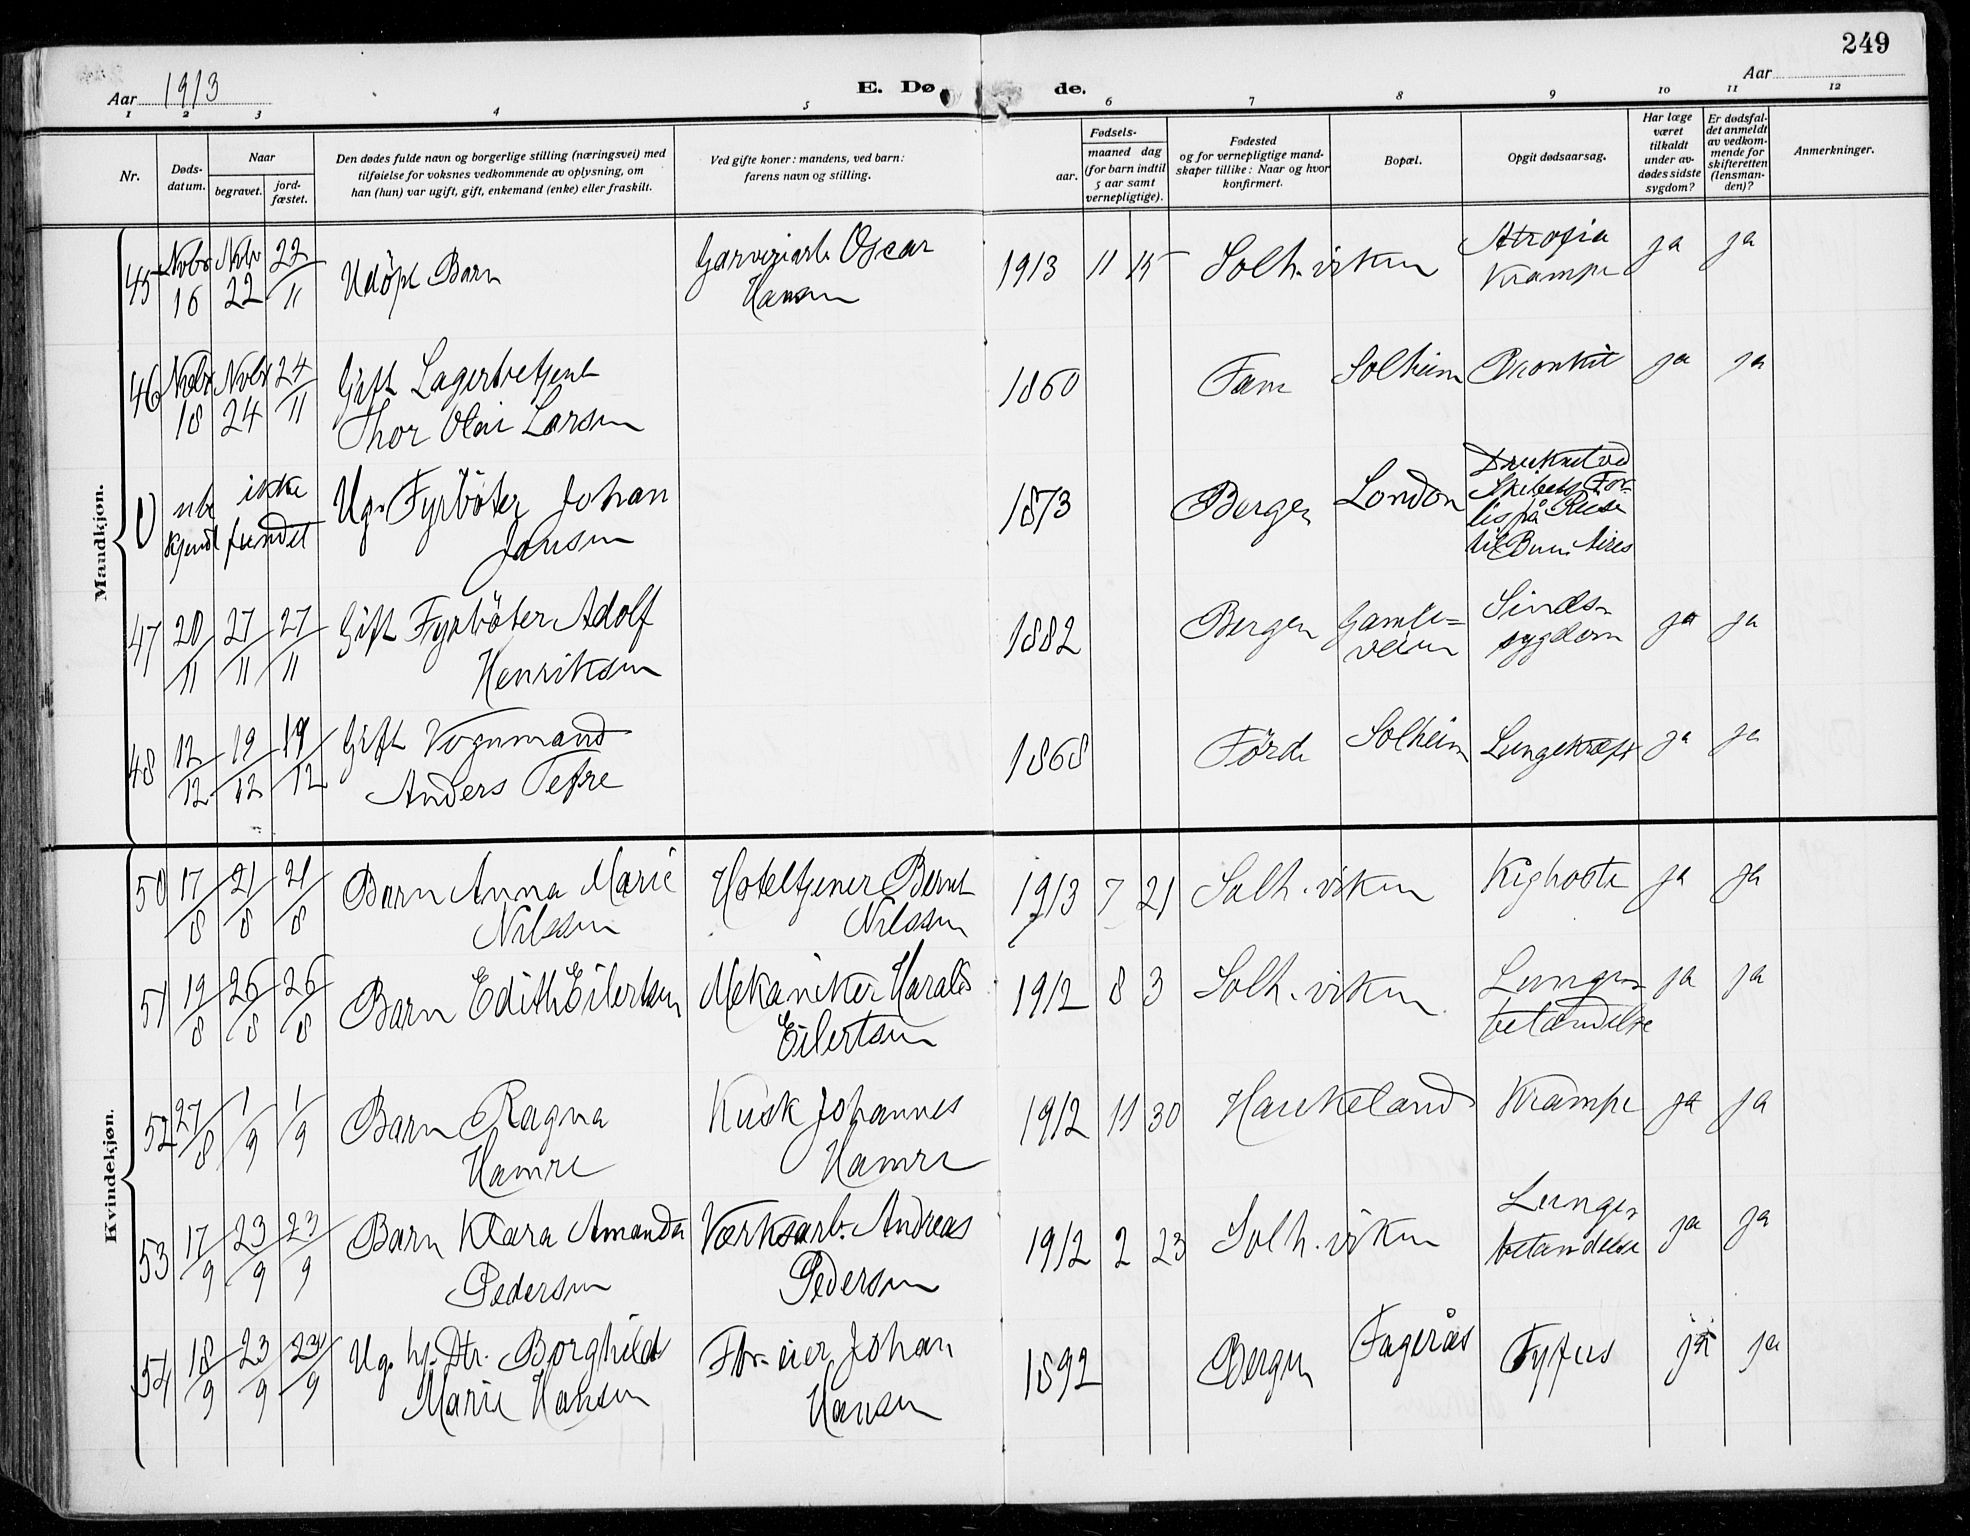 249
Aar 1913
E. Dø
de.
Aar
1 2 3 4 5 6 7 8 9 10 11 12
Nr.
Døds-
datum.
Naar
begravet.
jord-
fæstet.
Den dødes fulde navn og borgerlige stilling (næringsvei) med
tilføielse for voksnes vedkommende av oplysning, om
han (hun) var ugift, gift, enkemand (enke) eller fraskilt.
Ved gifte koner: mandens, ved barn:
farens navn og stilling.
Fødsels-
aar.
maaned dag
(for barn indtil
5 aar samt
vernepligtige).
Fødested
og for vernepligtige mand-
skaper tillike: Naar og hvor
konfirmert.
Bopæl.
Opgit dødsaarsag.
Har læge
været
tilkaldt
under av-
dødes sidste
sygdom?
Er dødsfal-
det anmeldt
av vedkom-
mende for
skifteretten
(lensman-
den)?
Anmerkninger.
Mandkjøn.
45 Novbr 16 Novbr 22 22/11 Udöpt Barn
Garveriarb. Oscar
Hansen
1913 11 15 Solh.viken Atrofia
Krampe
ja ja
46 Novbr 18 Novbr 24 24/11 Gift Lagerbetjent
Thor Olai Larsen
1860 Fane Solheim Bronkit ja ja
U ube
kjendt
ikke
fundet
Ug. Fyrböter Johan
Jansen
1873 Bergen London Druknet ved
Skibets For-
lis på Reise
til Buen. Aires
47 20/11 27/11 27/11 Gift Fyrböter Adolf
Henriksen
1882 Bergen Gamle=
veien
Sinds-
sygdom
ja ja
48 12/12 19/12 19/12 Gift Vognmand
Anders Tefre
1868 Förde Solheim Lungekræft ja ja
Kvindekjøn.
50 17/8 21/8 21/8 Barn Anna Marie
Nilssen
Hoteltjener Bernt
Nilssen
1913 7 21 Solh.viken Kighoste ja ja
51 19/8 26/8 26/8 Barn Edith Eilertsen
Mekaniker Harald
Eilertsen
1912 8 3 Solh.viken Lunge-
betændelse
ja ja
52 27/8 1/9 1/9 Barn Ragna
Hamre
Kusk Johannes
Hamre
1912 11 30 Haukeland Krampe ja ja
53 17/9 23/9 23/9 Barn Klara Amanda
Pedersen
Værksarb. Andreas
Pedersen
1912 2 23 Solh.viken Lunge-
betændelse
ja ja
54 18/9 23/9 23/9 Ug. hj. Dtr. Borghild
Marie Hansen
Johan
Hansen
1892 Bergen Fagerås Tyfus ja ja